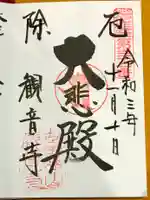 令和三年
十月十日
厄除
大悲殿
観音寺